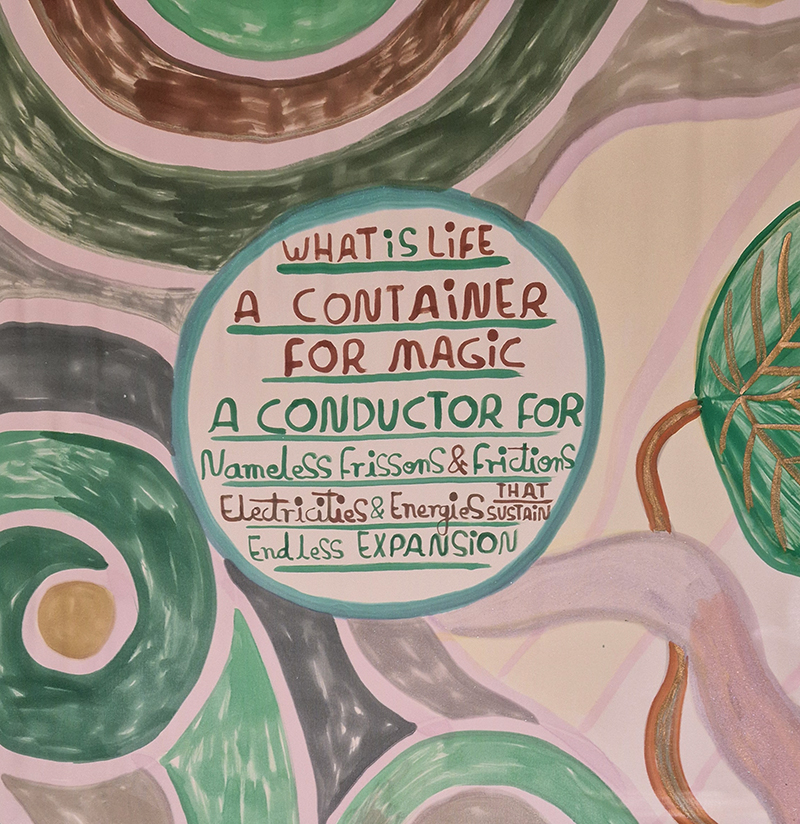 WHAT iS LiFE
A CONTAiNER
FOR MAGiC
A CONDUCTOR FOR
Nameless frissons & frictions
Electricities & Energies THAT SUSTAiN
Endless EXPANSiON